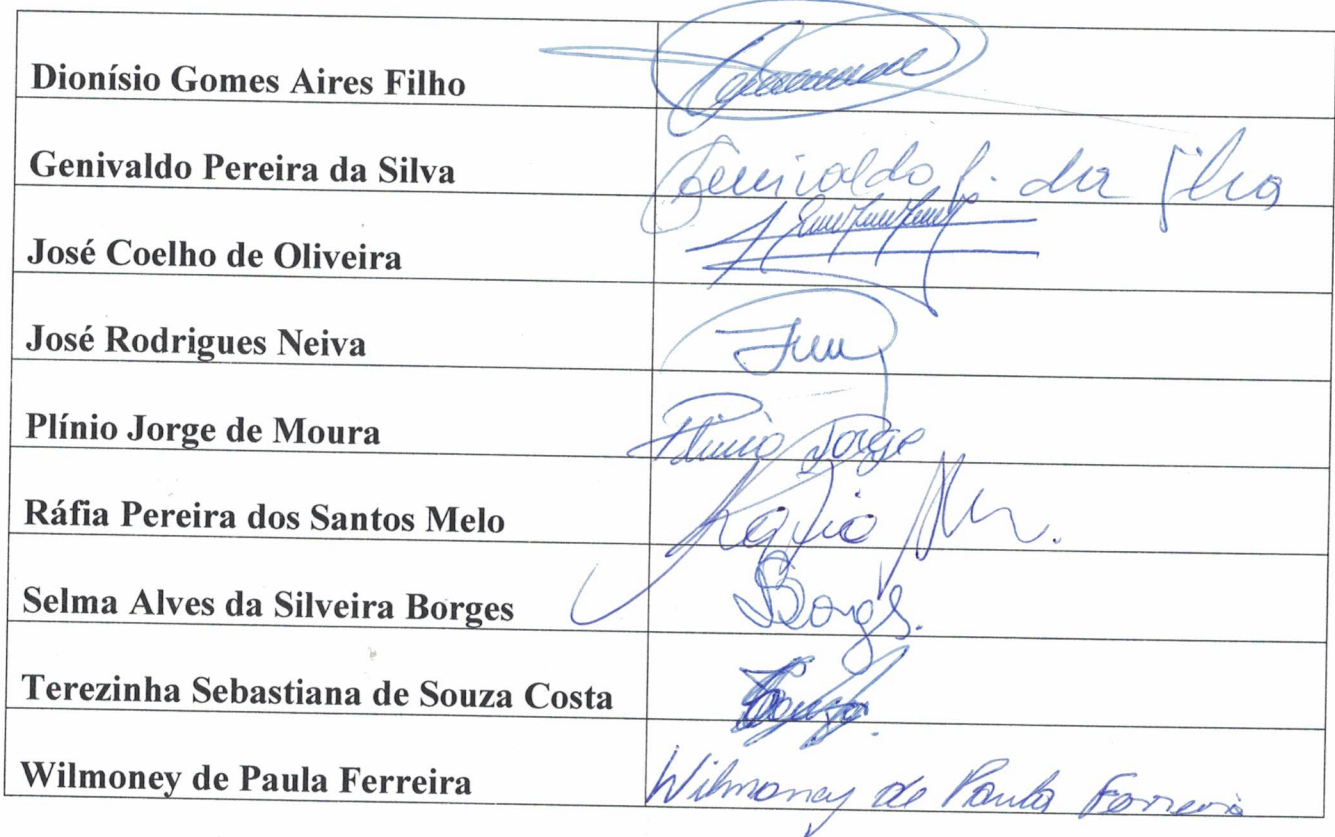 Dionísio Gomes Aires Filho
Genivaldo Pereira da Silva Genivaldo P. da Silva
José Coelho de Oliveira
José Rodrigues Neiva
Plínio Jorge de Moura Plínio Jorge
Ráfia Pereira dos Santos Melo Ráfia
Selma Alves da Silveira Borges SBorges.
Terezinha Sebastiana de Souza Costa
Wilmoney de Paula Ferreira Wilmoney de Paula Ferreira